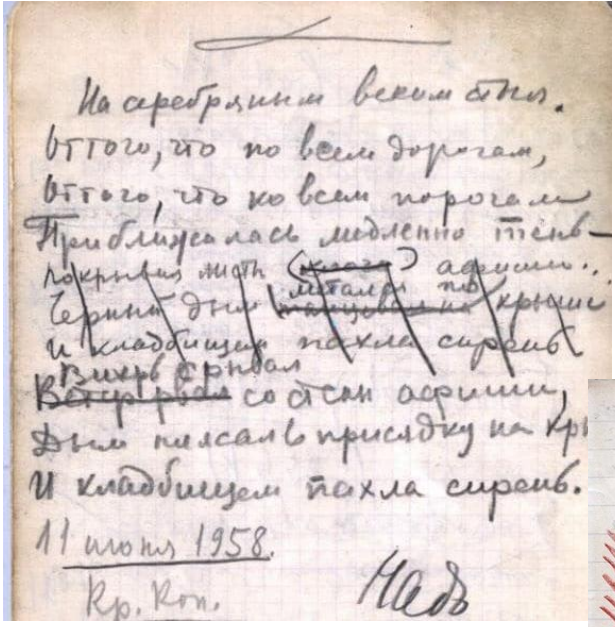 На серебряным веком
Оттого, что по всем дорогам,
Оттого, что ко всем порогам
Приближалась медленно тень —
афиши..
метался по
Черный дым танцевал на крыше
И кладбищем пахла сирень
Вихрь срывал
Ветер рвал со стен афиши,
Дым плясал вприсядку на кры
И кладбищем пахла сирень.
11 июня 1958.
Кр. Кон.